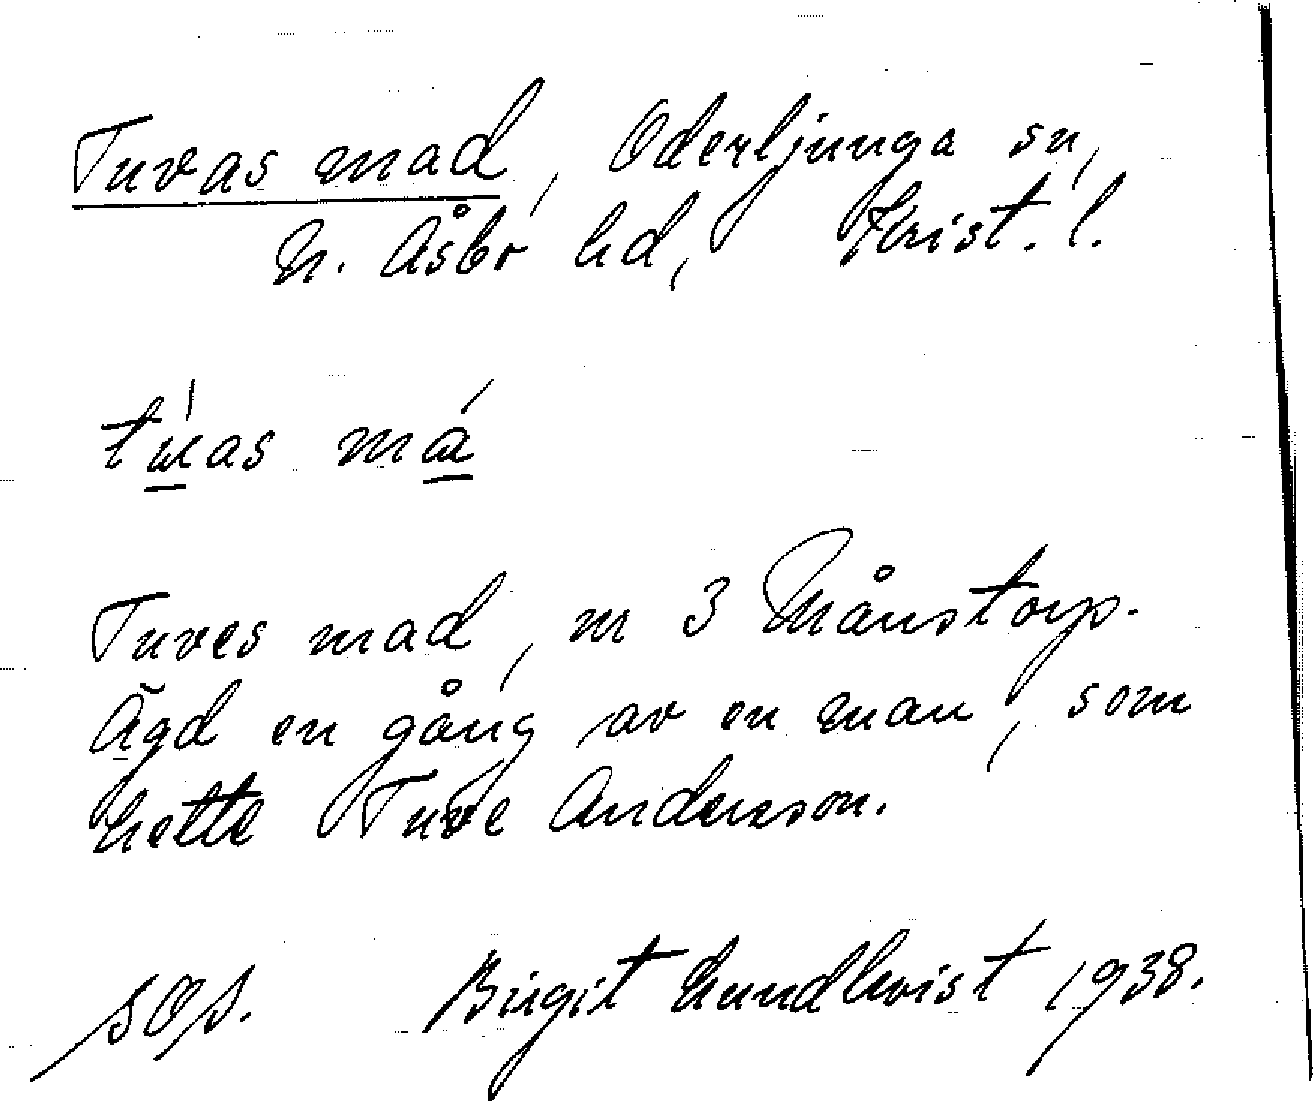 Tuvas mad, Oderljunga sn,
N. Åsbo hd, Krist. l.
túas má
Tuves mad, m 3 Månstorp.
Ägd en gång av en man, som
hette Tuve Anderson.
Birgit Lundkvist 1938.